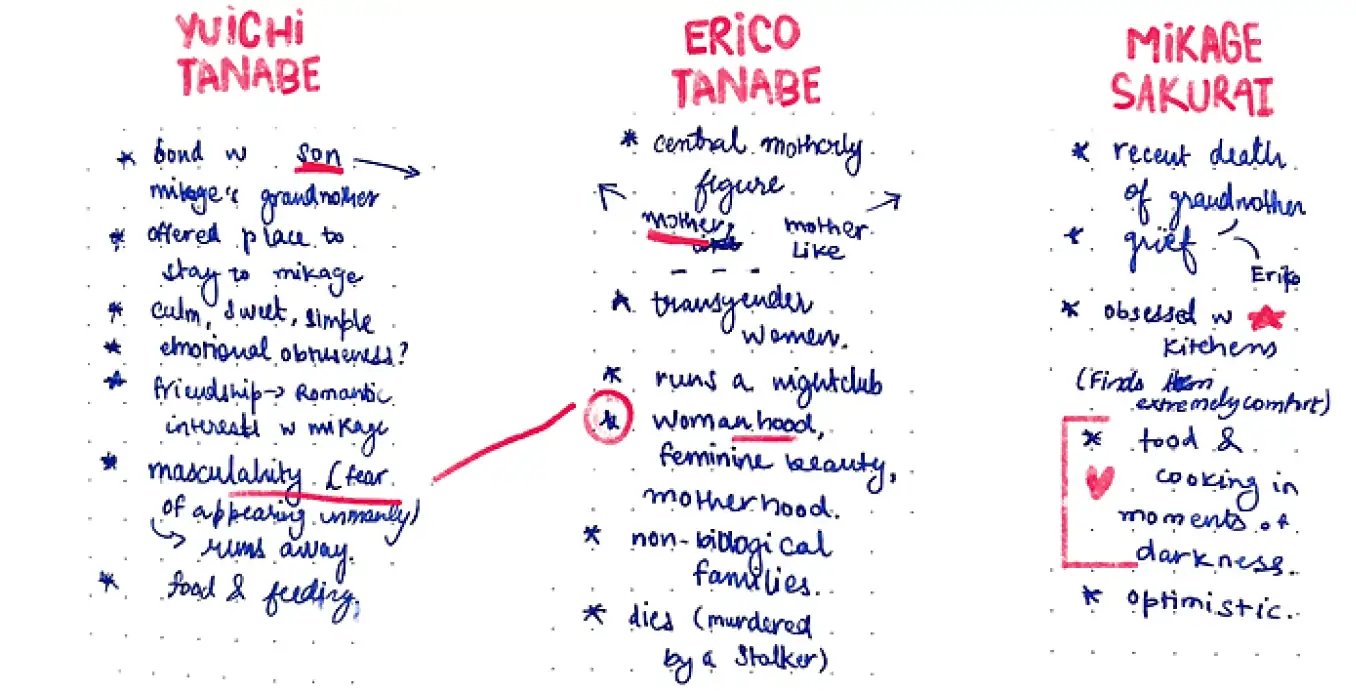 YUICHI
TANABE
* bond w son →
mikage's grandmother
* offered place to
stay to mikage
* calm, sweet, simple
* emotional obtuseness?
* friendship → Romantic
interests w mikage
* masculahity (fear
of appearing unmanly)
↳ runs away.
* food & feeding.
ERICO
TANABE
* central motherly
figure
mother,
mother
like
* transgender
women.
* runs a nightclub
* womanhood,
feminine beauty,
motherhood.
* non-biological
families.
* dies (murdered
by a stalker)
MIKAGE
SAKURAI
* recent death
of grandmother
* grief
Eriko
* obsessed w
kitchens
(Finds
extremely comfort)
* food &
cooking in
moments of
darkness.
* optimistic.